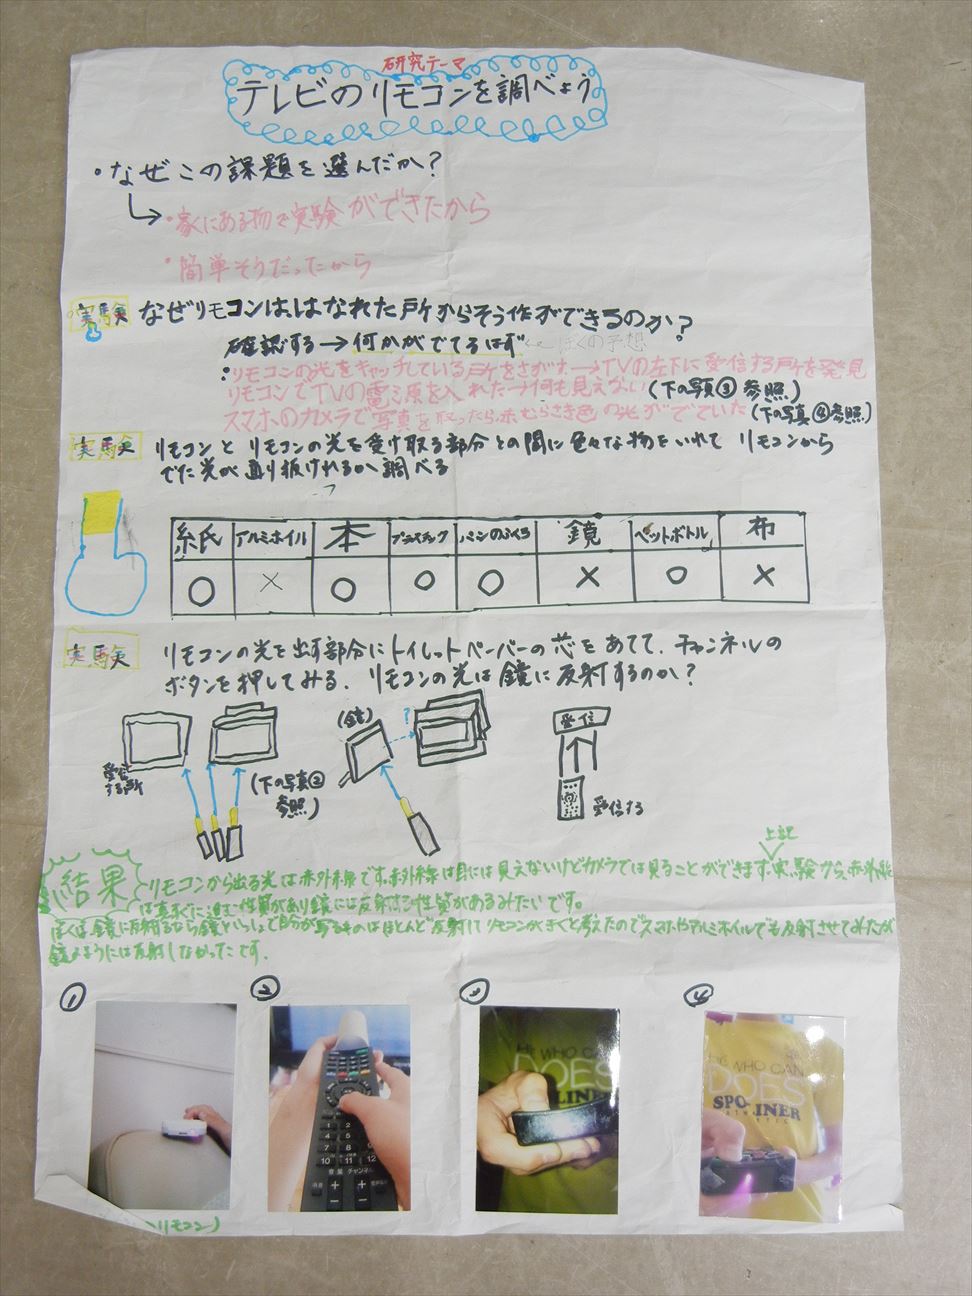 研究テーマ
テレビのリモコンを調べよう
・なぜこの課題を選んだか?
・家にある物で実験ができたから
・簡単そうだったから
実験 なぜリモコンは、はなれた所からそう作ができるのか?
確認する→何かがでてるはず ←ぼくの予想
・リモコンの光をキャッチしている所をさがす→TVの左下に受信する所を発見
リモコンでTVの電源を入れた→何も見えない(下の写真③参照)
スマホのカメラで写真を取ったら、赤むらさき色の光がでていた(下の写真④参照)
実験 リモコンとリモコンの光を受け取る部分との間に色々な物をいれてリモコンから
でた光が通り抜けれるか調べる
紙 アルミホイル 本 プラスチック パンのふくろ 鏡 ペットボトル 布
○ × ○ ○ ○ × ○ ×
実験 リモコンの光を出す部分にトイレットペーパーの芯をあてて、チャンネルの
ボタンを押してみる、リモコンの光は鏡に反射するのか?
(鏡)
?
受信
受信
する所
(下の写真②
参照)
受信する
上記
結果 リモコンから出る光は赤外線です。赤外線は目には見えないけどカメラでは見ることができます。実験から、赤外線
は真すぐに進む性質があり鏡には反射する性質があるみたいです。
ぼくは、鏡に反射するなら鏡といっしょで自分が写るものはほとんど反射してリモコンがきくと考えたのでスマホやアルミホイルでも反射させてみたが
鏡のようには反射しなかったです。
① ② ③ ④
1 2
4 5
7 8 9
10 11 12
音量 チャンネル
消音
+ +
- -
HE WHO CAN
DOES
LINER
HE WHO CAN
DOES
SPO-LINER
リモコン